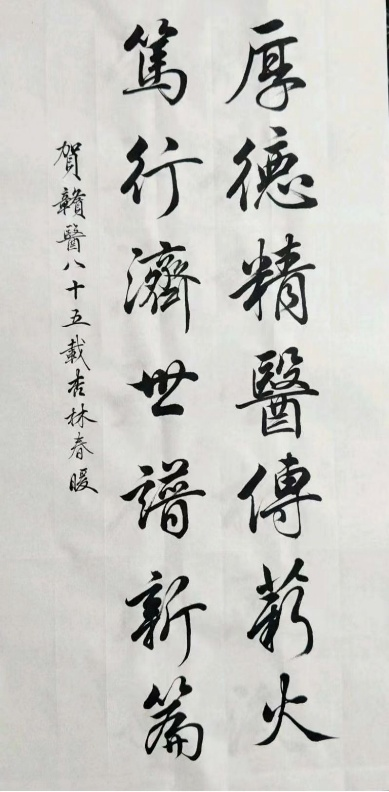 厚德精醫傳薪火
篤行濟世譜新篇
賀贛醫八十五載杏林春暖